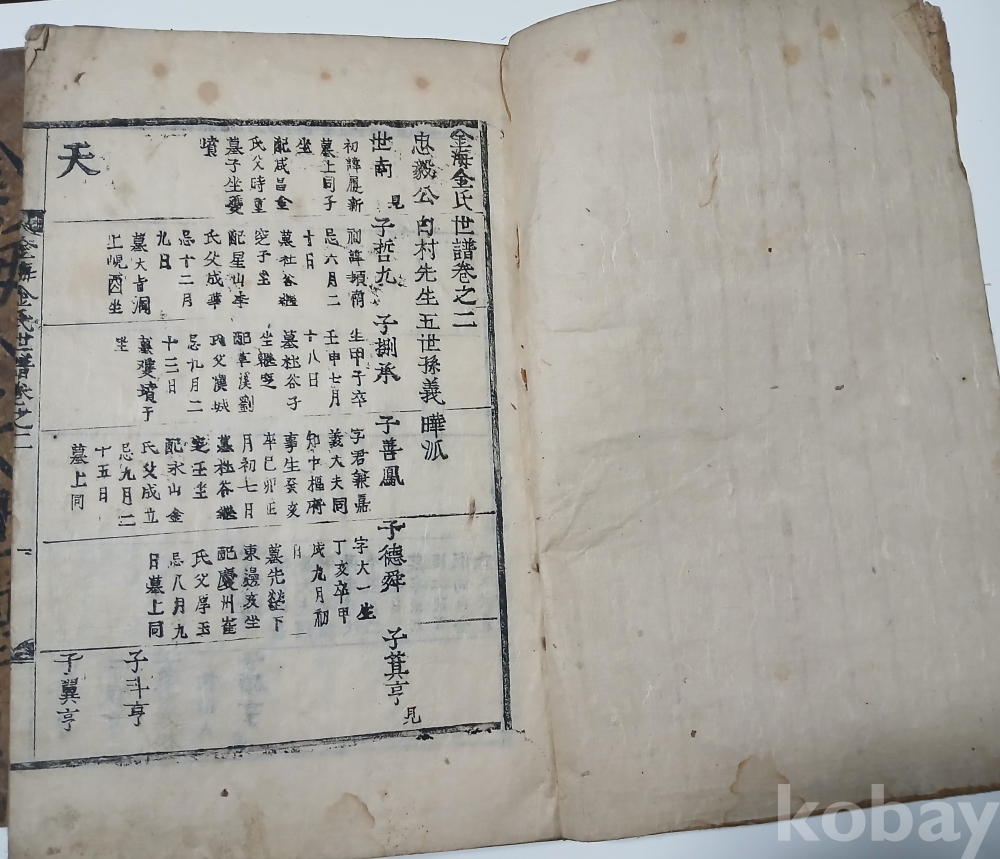 金海金氏世譜卷之二
忠毅公白村先生五世孫義曄派
世南
見
初諱履新
墓上同子
坐
配咸昌金
氏父時重
墓子坐雙
墳
天
子哲九
初諱碩南
忌六月二
十日
墓社谷繼
室子坐
配星山李
氏父成華
忌十二月
九日
墓大旨洞
上峴酉坐
子捌承
生甲子卒
壬申七月
十八日
墓社谷子
坐繼室
配草溪劉
氏父漢城
忌九月二
十三日
墓雙墳子
坐
子善鳳
字君兼嘉
義大夫同
知中樞府
事生癸亥
卒己卯正
月初七日
墓社谷繼
室壬坐
配永山金
氏父成立
忌九月二
十五日
墓上同
子德舜
字大一生
丁亥卒甲
戌九月初
日
墓先塋下
東邊亥坐
配慶州崔
氏父厚玉
忌八月九
日墓上同
子箕亨
見
子斗亨
子翼亨
金海金氏世譜卷之二
一
kobay